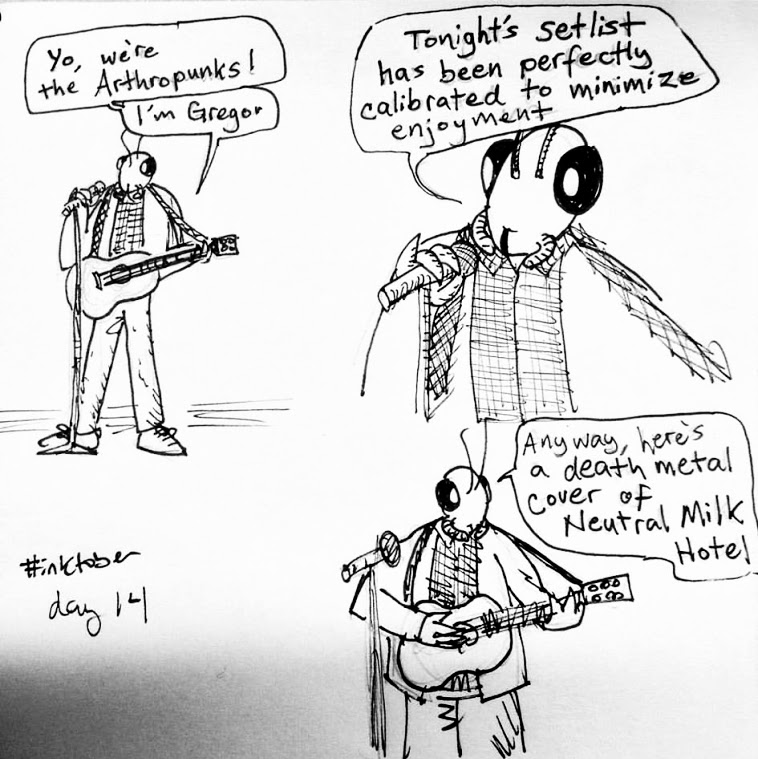 Yo, we're
the Arthropunks!
I'm Gregor
Tonight's setlist
has been perfectly
calibrated to minimize
enjoyment
Anyway, here's
a death metal
cover of
Neutral Milk
Hotel
#inktober
day 14